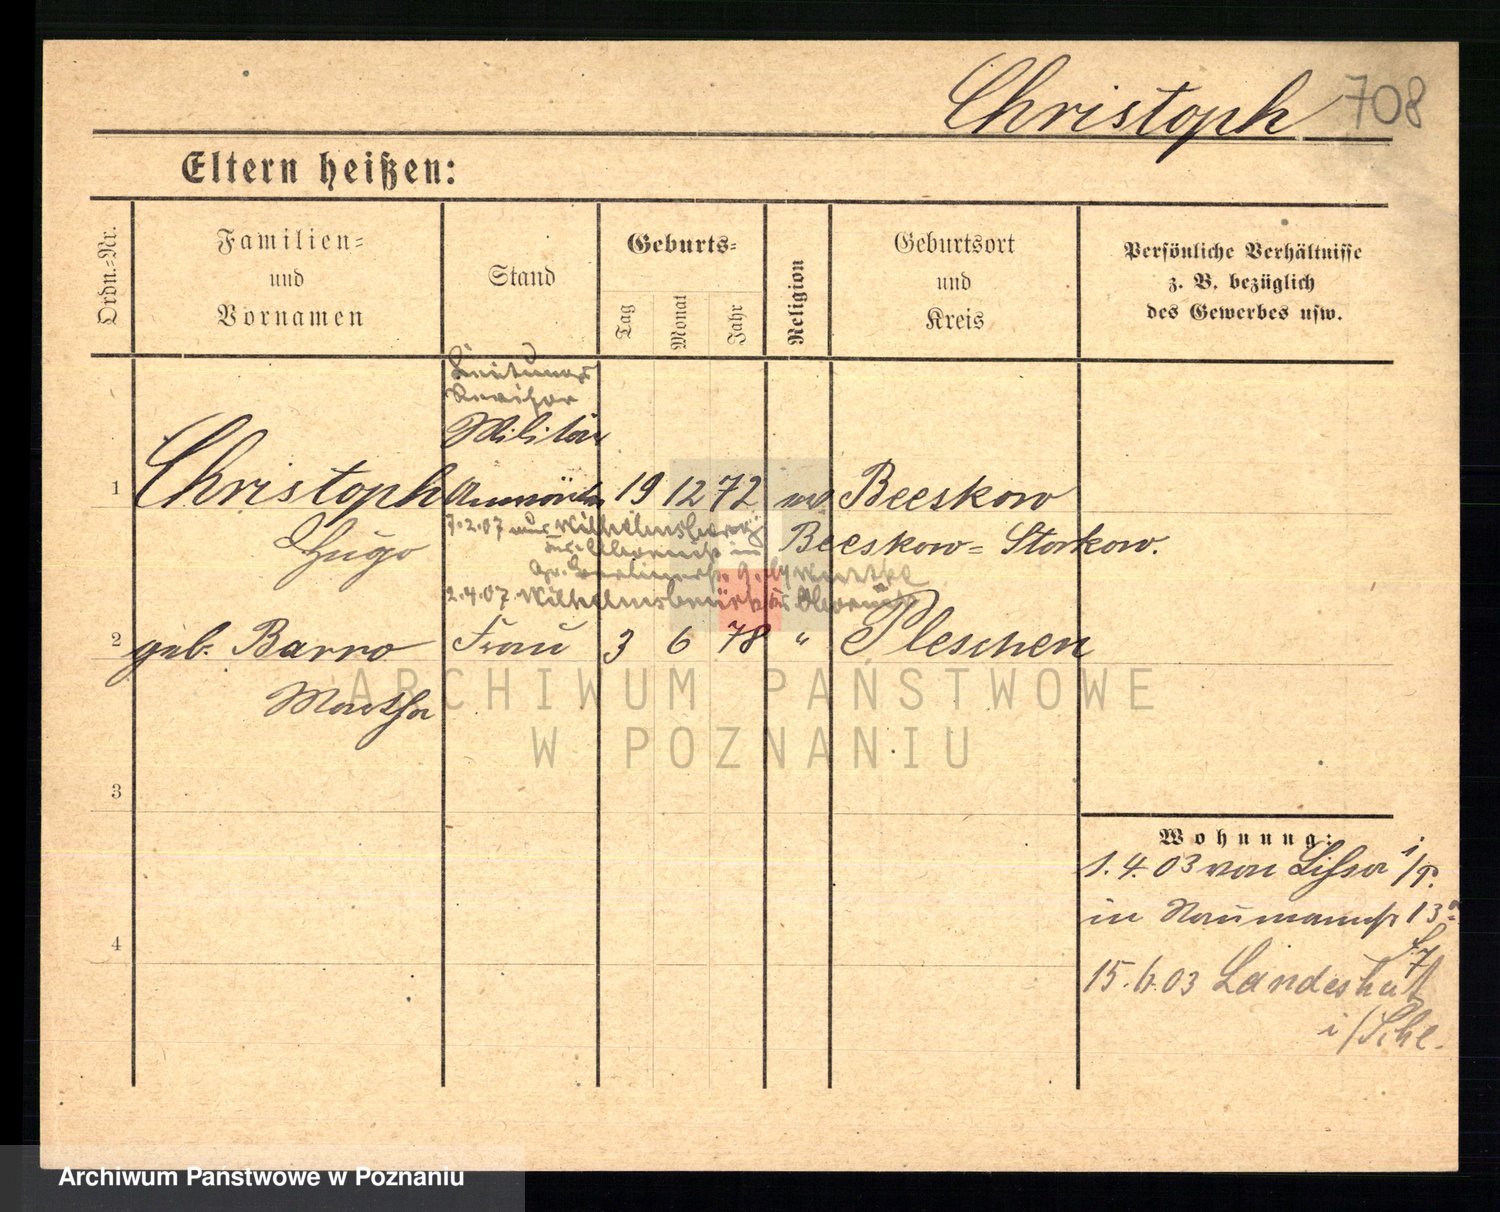 Christoph 708
Eltern heißen:
Ordn.-Nr.
Familien-
und
Vornamen
Stand
Geburts-
Tag
Monat
Jahr
Religion
Geburtsort
und
Kreis
Persönliche Verhältnisse
z. B. bezüglich
des Gewerbes usw.
Militär
1 Christoph Anwärter 19 12 72 Beeskow
Hugo
Beeskow-Storkow.
7.2.07
2.4.07
2 geb. Barro Frau 3 6 78 " Pleschen
Martha
3
4
Wohnung:
1.4.03 von Lissa i/P.
in Naumannstr 13a
15.6.03 Landeshut
i/Schl.
ARCHIWUM PAŃSTWOWE
W POZNANIU
Archiwum Państwowe w Poznaniu